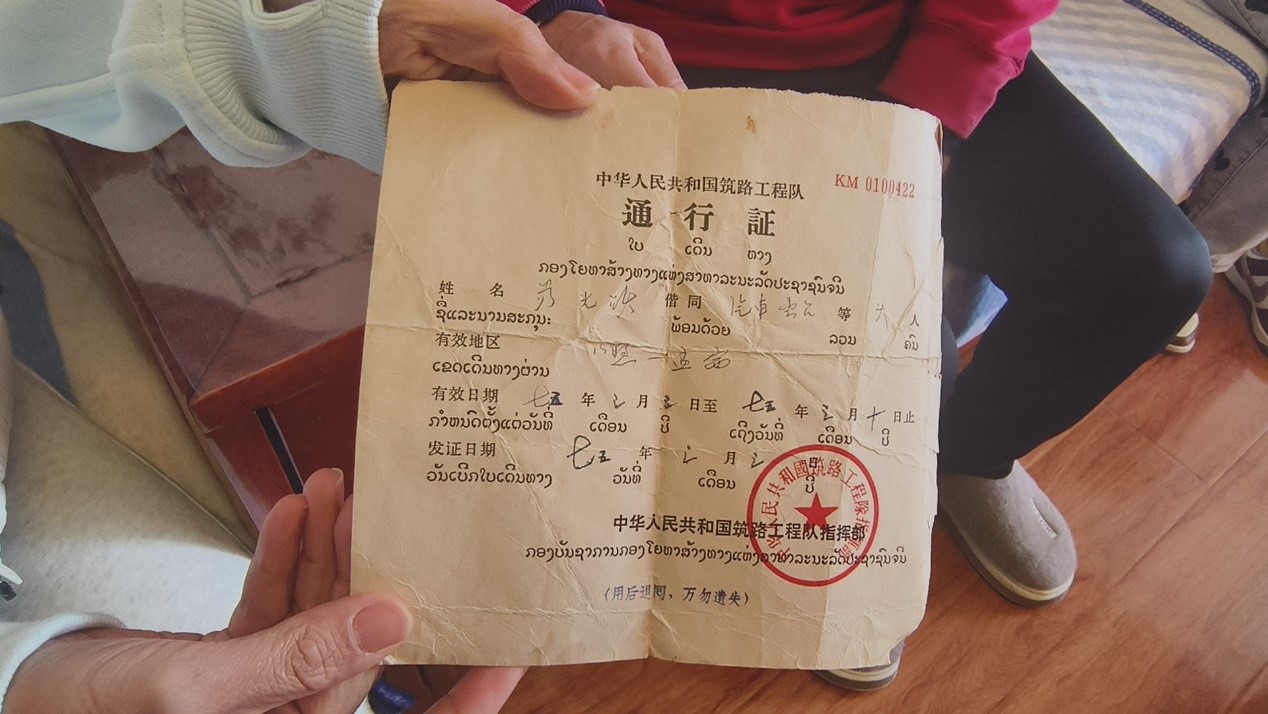 中华人民共和国筑路工程队
KM 0100422
通行証
ໃບ ເດີນ ທາງ
ກອງໂຍທາສ້າງທາງແຫ່ງສາທາລະນະລັດປະຊາຊົນຈີນ
姓 名 光 偕同 汽車 等 人
ຊື່ແລະນານສະກຸນ: ພ້ອມດ້ວຍ ລວມ ຄົນ
有效地区
ເຂດເດີນທາງຜ່ານ
有效日期 七五 年 三 月 三 日至 七五 年 三 月 十 日止
ກຳຫນົດຕັ້ງແຕ່ວັນທີ່ ເດືອນ ປີ ເຖິງວັນທີ່ ເດືອນ ປີ
发证日期 七五 年 三 月 三 日
ວັນເບີກໃບເດີນທາງ ວັນທີ່ ເດືອນ ປີ
中华人民共和国筑路工程队指挥部
ກອງບັນຊາການກອງໂຍທາສ້າງທາງແຫ່ງສາທາລະນະລັດປະຊາຊົນຈີນ
中华人民共和國筑路工程隊指揮部
(用后退回，万勿遗失)